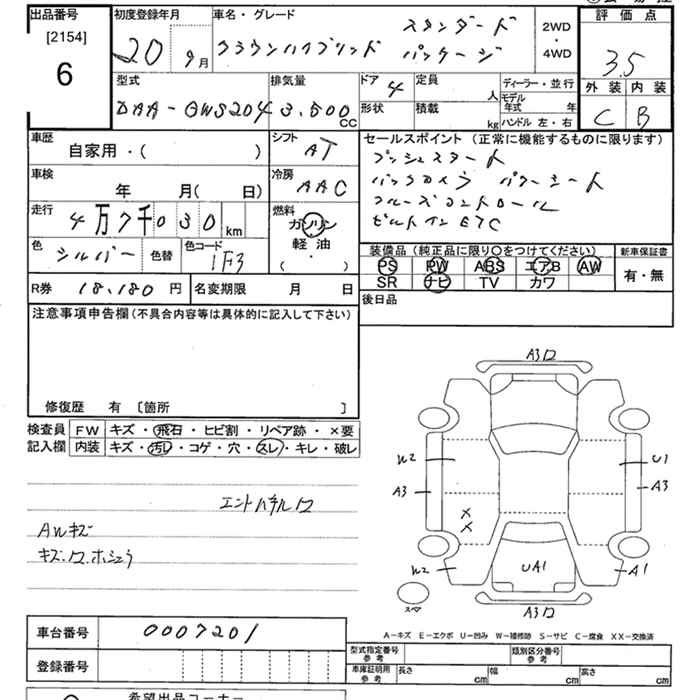 出品番号
[2154]
6
初度登録年月
20 9月
車名・グレード
クラウンハイブリッド スタンダードパッケージ
2WD
・
4WD
評価点
3.5
外装 内装
C B
型式
DAA-GWS204
排気量
3,500 CC
ドア 4
形状
定員 人
積載 kg
ディーラー・並行
モデル年式 年
ハンドル 左・右
車歴
自家用・( )
シフト
AT
車検
年 月( 日)
冷房
AAC
走行
4万7千030km
燃料
ガソリン
軽油
( ・ )
色
シルバー
色替
色コード
1F3
R券 18,180 円
名変期限 月 日
セールスポイント (正常に機能するものに限ります)
プッシュスタート
バックカメラ パワーシート
クルーズコントロール
ビルトインETC
装備品 (純正品に限り○をつけてください)
PS PW ABS エアB AW
SR ナビ TV カワ
新車保証書
有・無
後日品
注意事項申告欄(不具合内容等は具体的に記入して下さい)
修復歴 有 〔箇所 〕
検査員記入欄
FW キズ・飛石・ヒビ割・リペア跡・×要
内装 キズ・汚レ・コゲ・穴・スレ・キレ・破レ
エンドパネルワ
AWキズ
キズ.ワ.ホシュウ
A3ワ
W2
U1
A3
A3
X
X
W2
UA1
A1
スペア
A3ワ
A-キズ E-エクボ U-凹み W-補修跡 S-サビ C-腐食 XX-交換済
車台番号 0007201
登録番号
型式指定番号
参考
類別区分番号
参考
車庫証明用
参考
長さ cm
幅 cm
高さ cm
希望出品コーナー